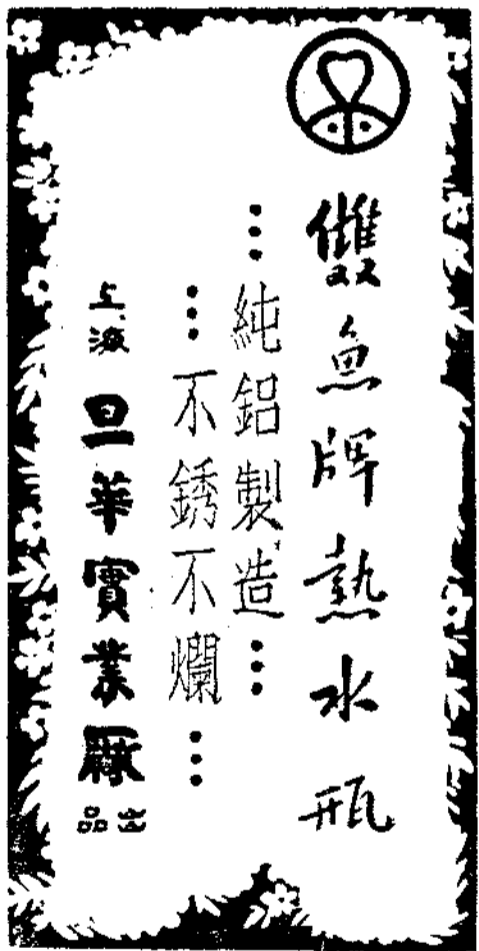 雙魚牌熱水瓶
…純鋁製造…
…不銹不爛…
上海旦華實業廠出品